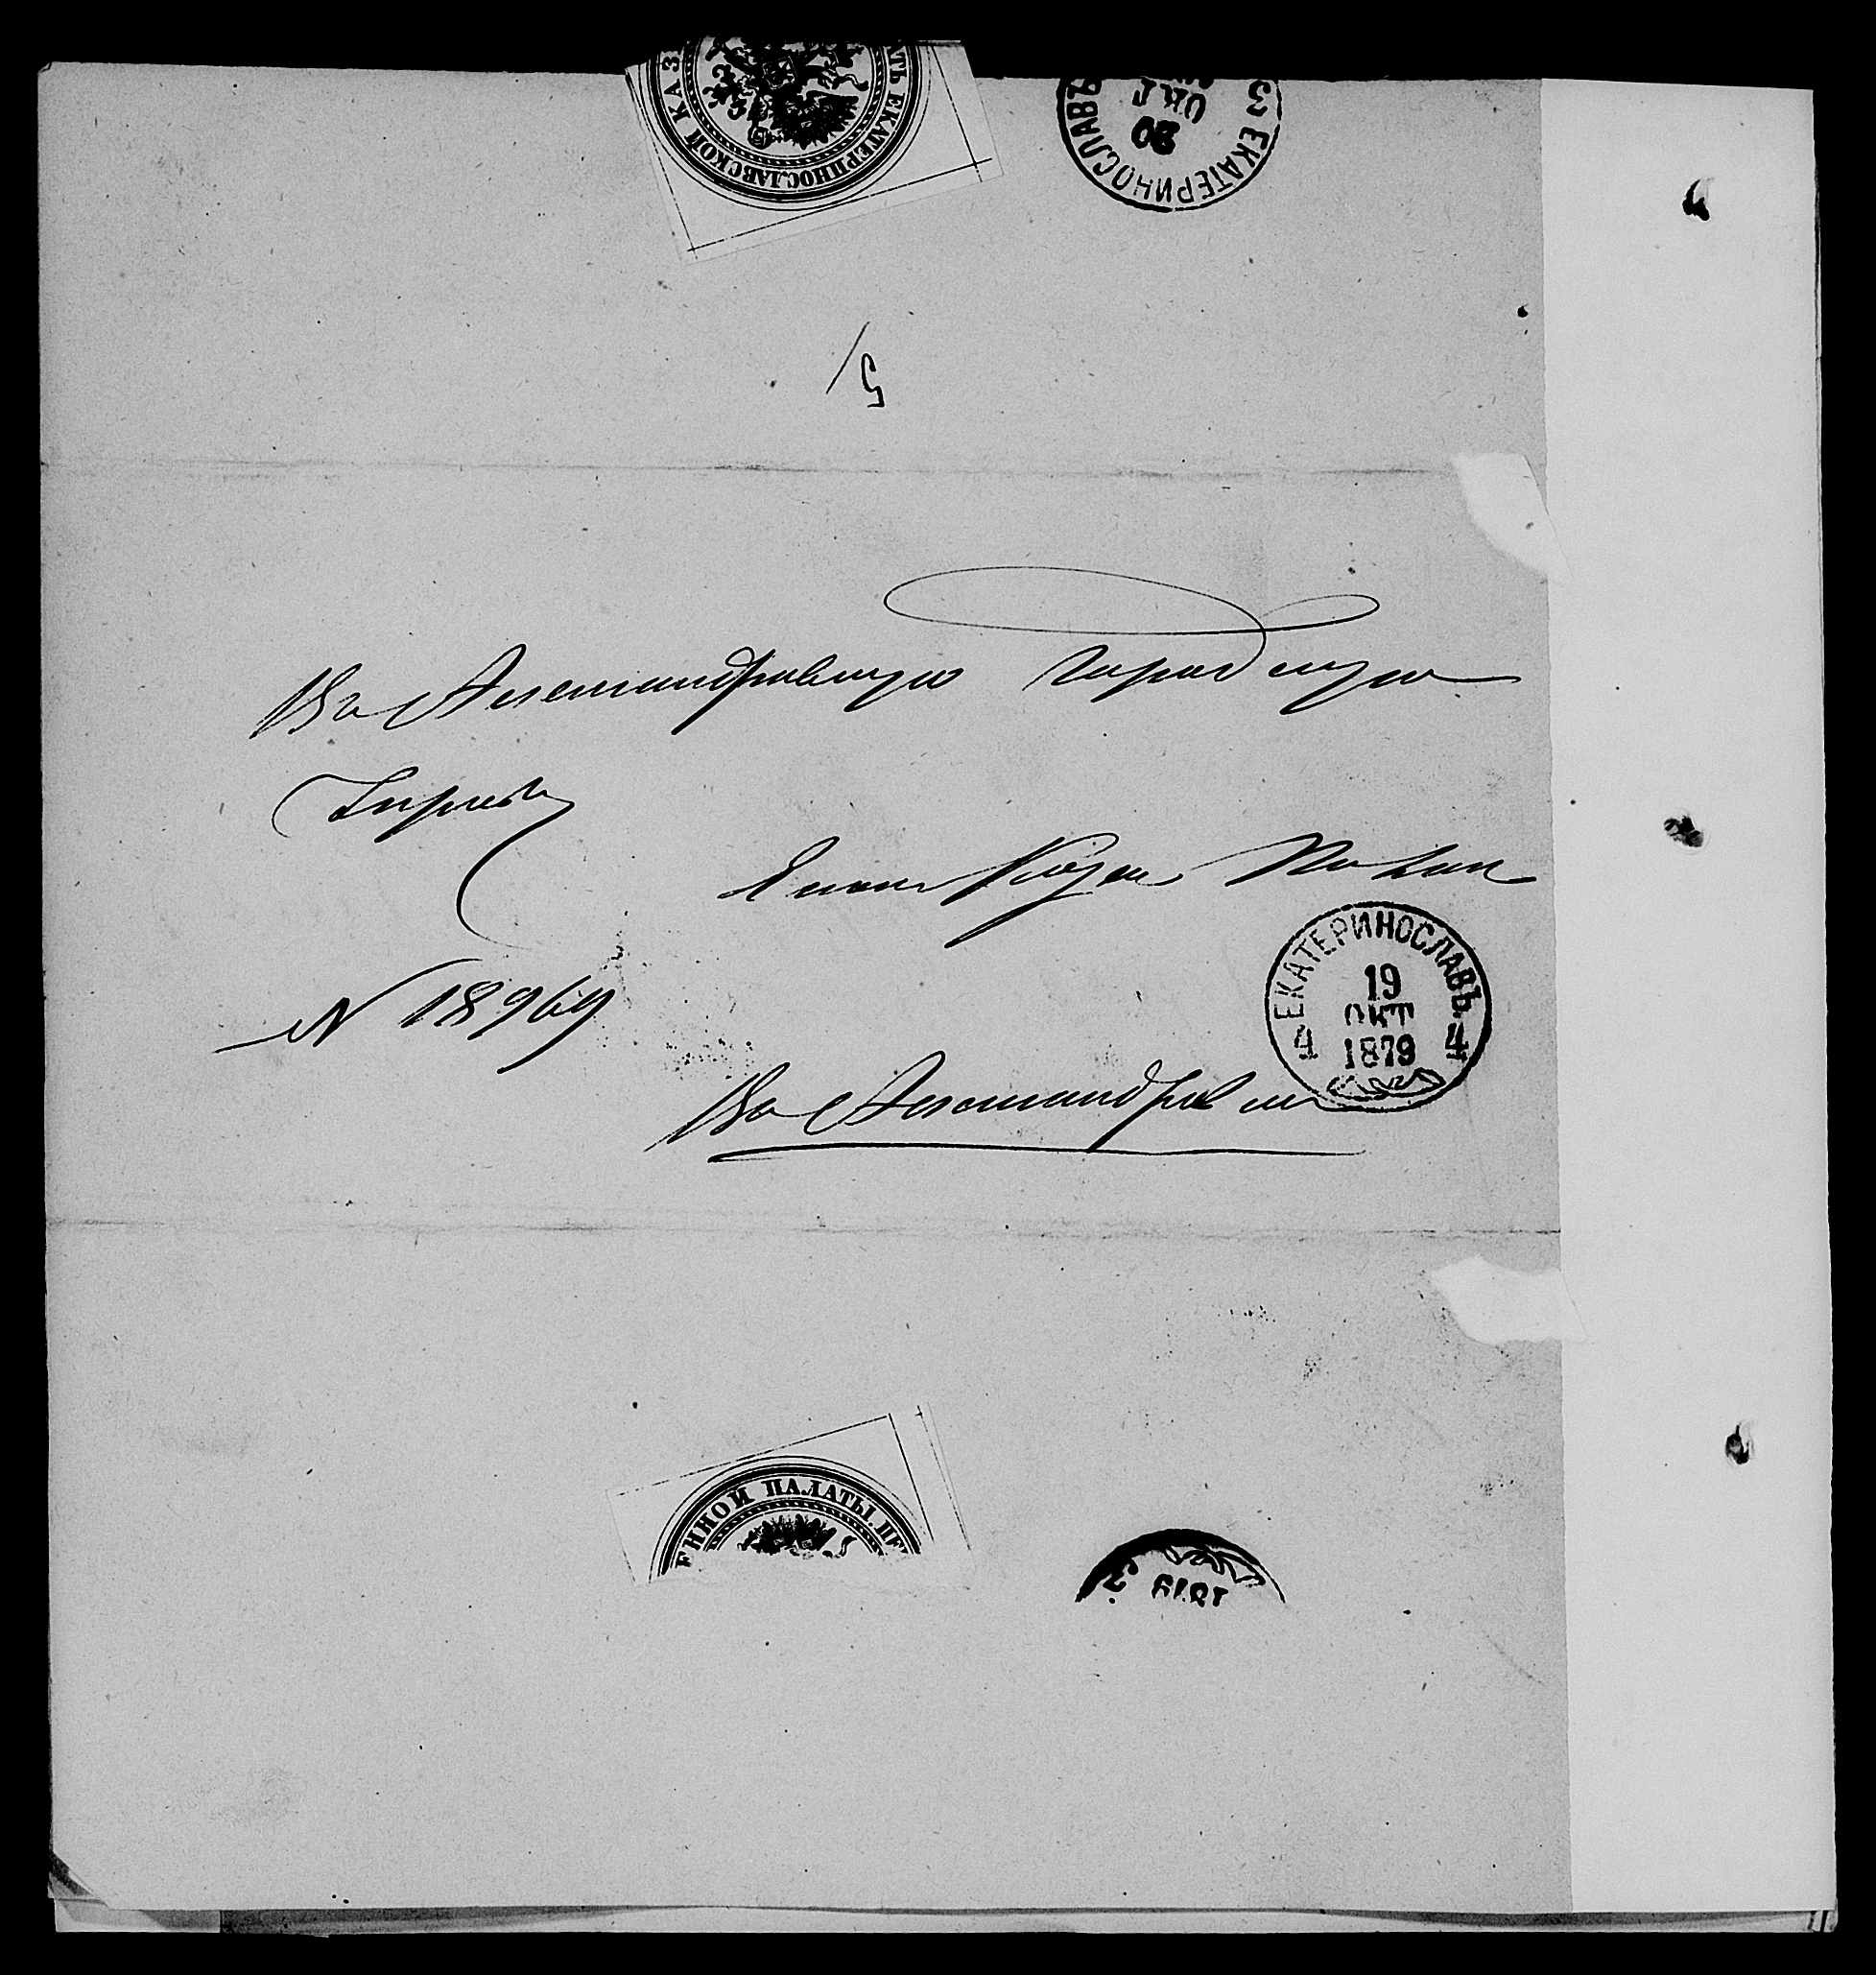 ТЬ ЕКАТЕРИНОСЛАВСКОЙ КАЗ
3 ЕКАТЕРИНОСЛАВЪ
20
ОКТ
5
Въ Александровскую городскую
Управу
Екат. Казен. Палат.
N 18969
ЕКАТЕРИНОСЛАВЪ
19
ОКТ
4 1879 4
Въ Александровск
ЕННОЙ ПАЛАТЫ. ПЕ
1879 3